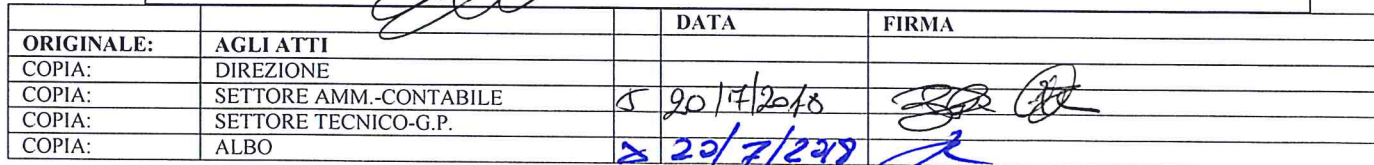 DATA FIRMA
ORIGINALE: AGLI ATTI
COPIA: DIREZIONE
COPIA: SETTORE AMM.-CONTABILE 20/7/2018
COPIA: SETTORE TECNICO-G.P.
COPIA: ALBO 20/7/2018